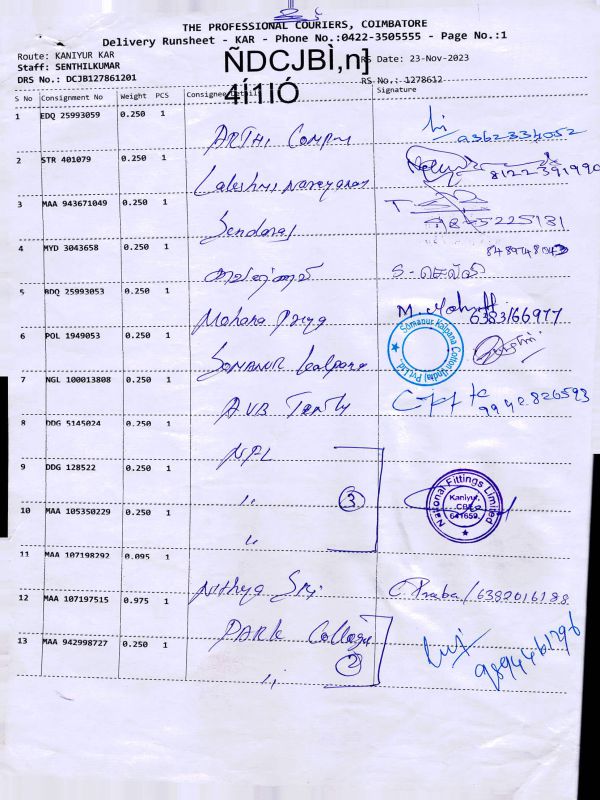 THE PROFESSIONAL COURIERS, COIMBATORE
Delivery Runsheet - KAR - Phone No.:0422-3505555 - Page No.:1
Route: KANIYUR KAR
Staff: SENTHILKUMAR
DRS No.: DCJB127861201
ÑDCJBÌ,n]
4Í1IÓ
RS Date: 23-Nov-2023
RS No.: 1278612
S No Consignment No Weight PCS Consignee Details Signature
1 EDQ 25993059 0.250 1 ARTHI 9362334052
2 STR 401079 0.250 1 Lakshmi Narayanan 8122391990
3 MAA 943671049 0.250 1
4 MYD 3043658 0.250 1
5 BDQ 25993053 0.250 1 Mohana Priya 6383166977
6 POL 1949053 0.250 1 SOMANUR Kalpana
Somanur Kalpana Cotton (India) Pvt.Ltd.
7 NGL 100013808 0.250 1 AVB
8 DDG 5145024 0.250 1 NFL
9 DDG 128522 0.250 1 ,,
3
10 MAA 105350229 0.250 1 ,,
National Fittings Limited
Kaniyur,
CBE
641659.
11 MAA 107198292 0.095 1 Nithya Sri C. Praba / 6382016188
12 MAA 107197515 0.975 1 PARK College
13 MAA 942998727 0.250 1 ,,
2
9894461796